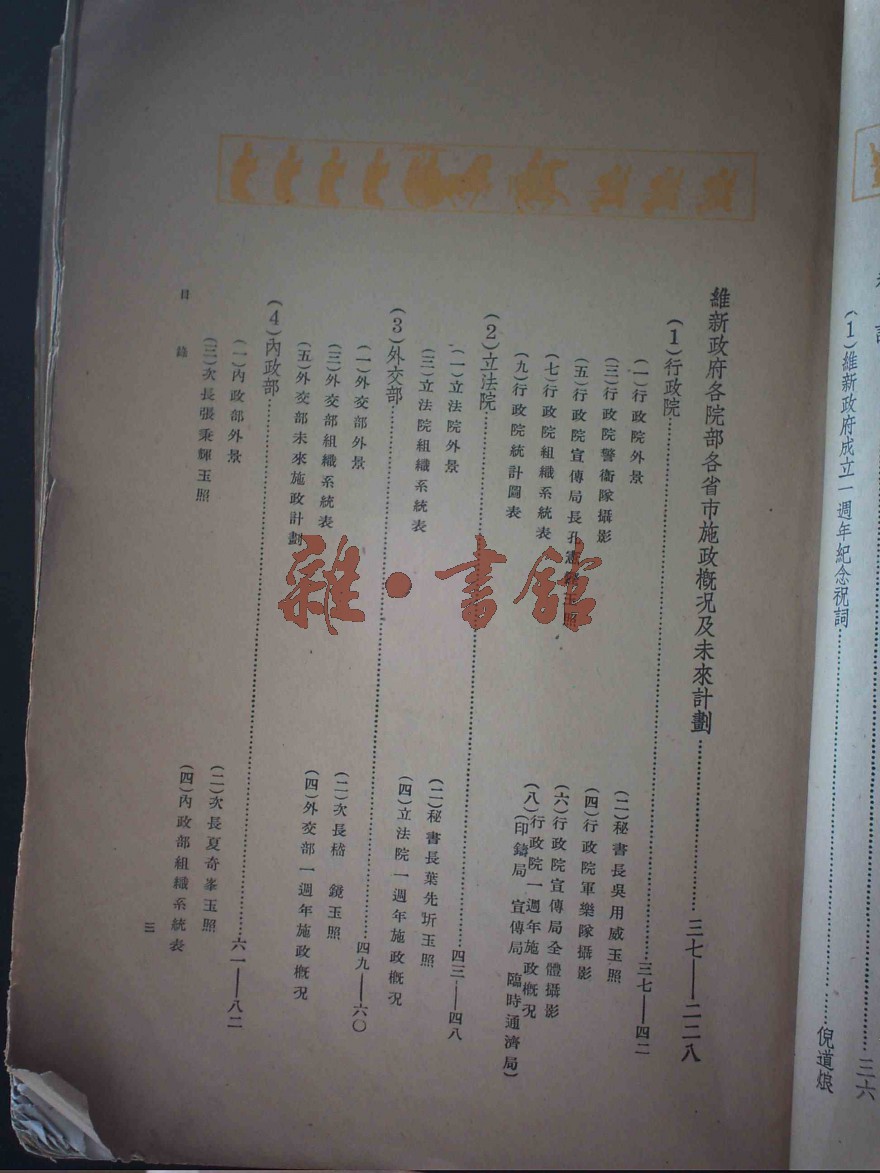 (1)維新政府成立一週年紀念祝詞……倪道烺
三六
維新政府各院部各省市施政概况及未來計劃……三七——二二八
(1)行政院……三七——四二
(一)行政院外景
(二)秘書長吳用威玉照
(三)行政院警衞隊攝影
(四)行政院軍樂隊攝影
(五)行政院宣傳局長孔憲 玉照
(六)行政院宣傳局全體攝影
(七)行政院組織系統表
(八)行政院一週年施政概况
(印鑄局 宣傳局 臨時通濟局)
(九)行政院統計圖表
(2)立法院……四三——四八
(一)立法院外景
(二)秘書長葉先圻玉照
(三)立法院組織系統表
(四)立法院一週年施政概况
(3)外交部……四九——六〇
(一)外交部外景
(二)次長嵇 鏡玉照
(三)外交部組織系統表
(四)外交部一週年施政概况
(五)外交部未來施政計劃
(4)內政部……六一——八二
(一)內政部外景
(二)次長夏奇峯玉照
(三)次長張秉輝玉照
(四)內政部組織系統表
目 錄
三
雜·書館